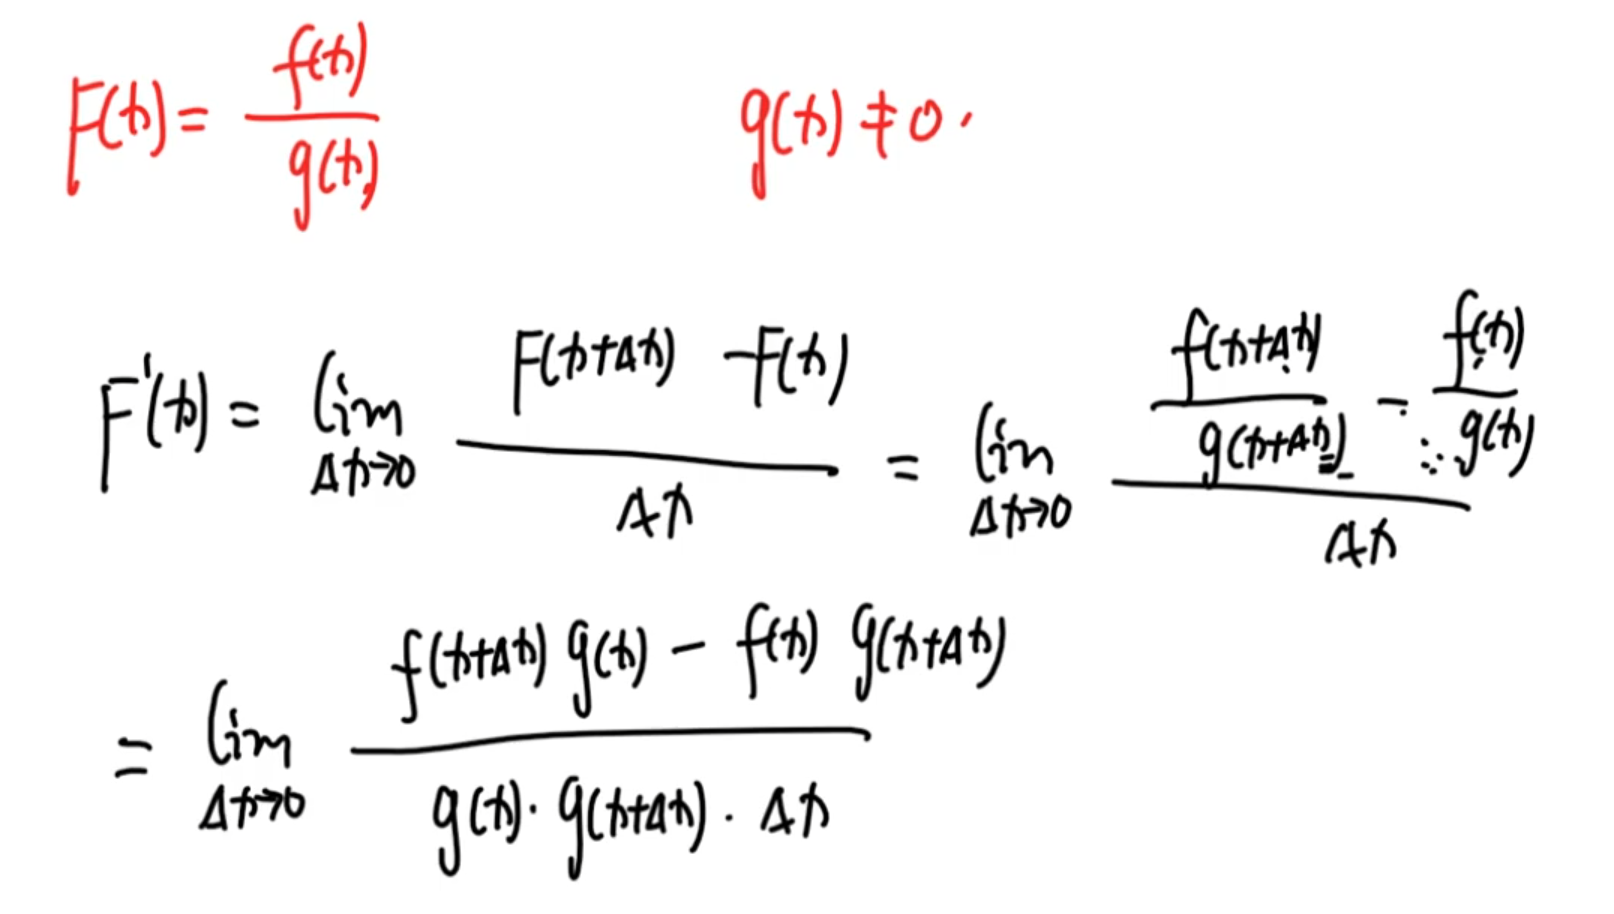 F(x) = f(x) / g(x)    g(x) ≠ 0 .
F'(x) = lim_{Δx→0} (F(x+Δx) - F(x)) / Δx = lim_{Δx→0} (f(x+Δx) / g(x+Δx) - f(x) / g(x)) / Δx
= lim_{Δx→0} (f(x+Δx) g(x) - f(x) g(x+Δx)) / (g(x) · g(x+Δx) · Δx)